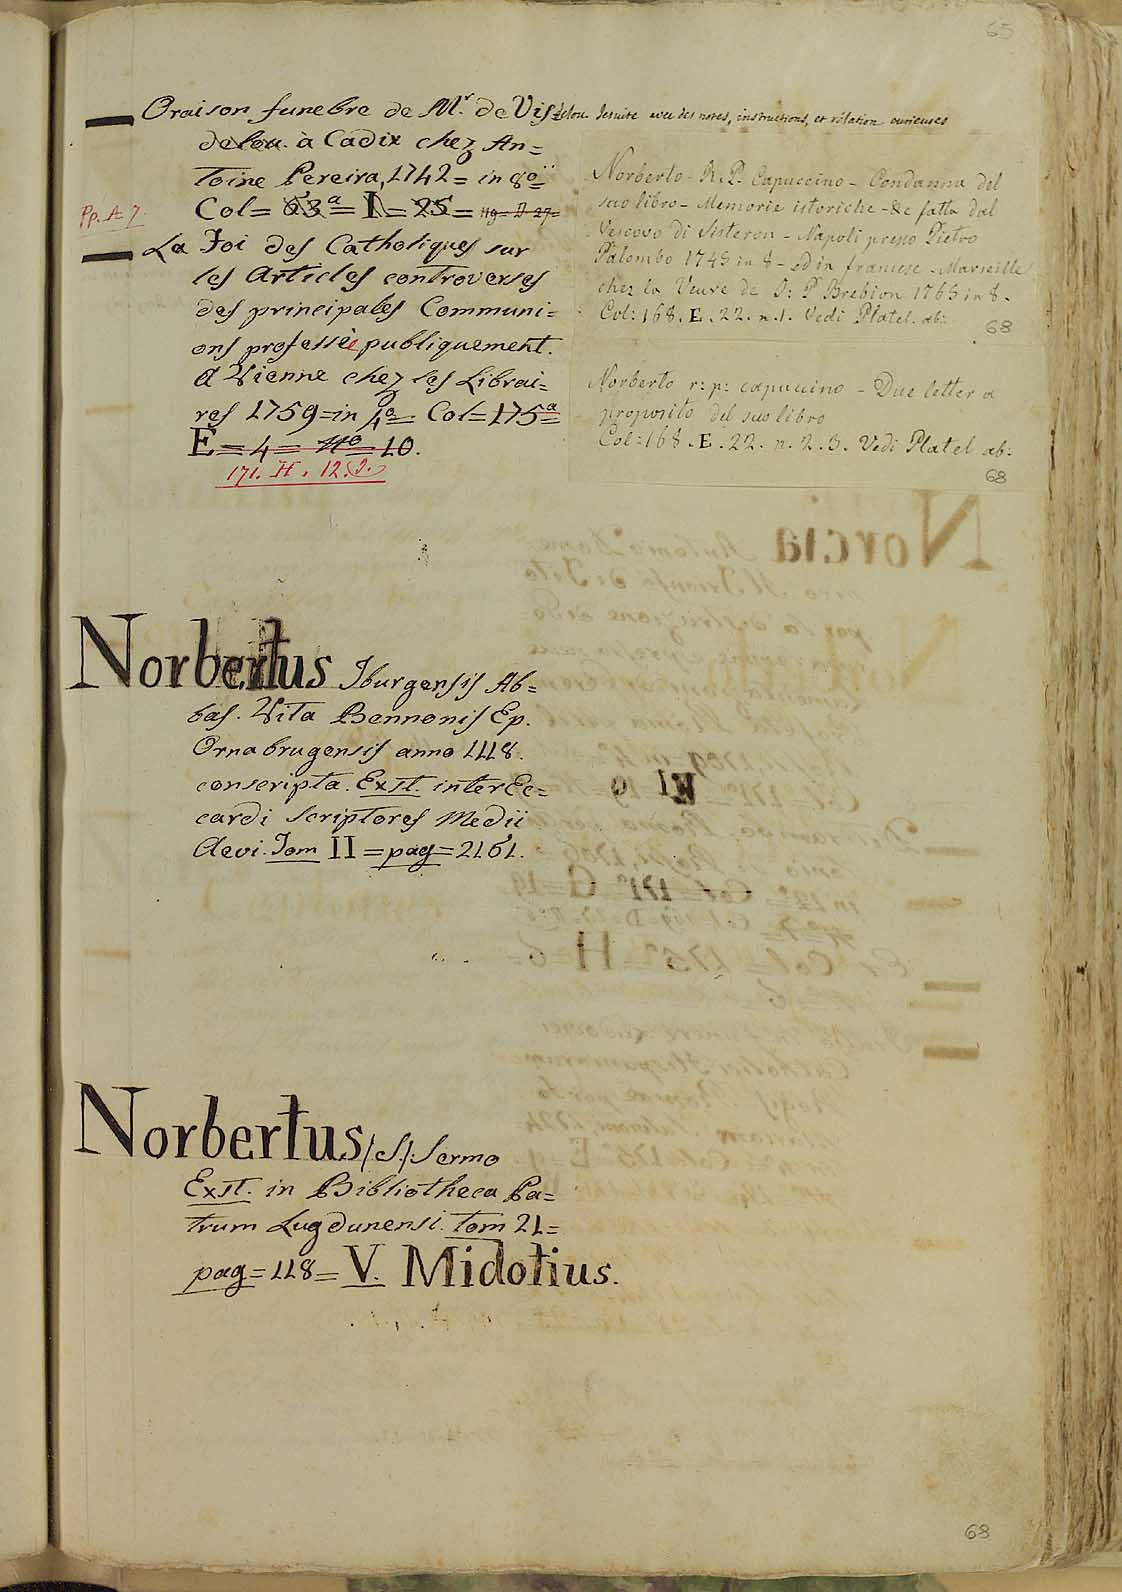 65
Oraison funebre de Mr. de Vis=delou. Jesuite avec des notes, instructions, et rélation curieuses
delou. à Cadix chez An=
toine Pereira, 1742= in 8o=
Col= 63a= I= 25= 119= D 27=
Pp. A 7.
La Foi des Catholiques sur
les Articles controverses
des principales Communi=
ons professèe publiquement.
A Vienne chez les Librai=
res 1759= in 4o= Col= 175a=
E= 4= No 10.
171. H. 12.
Norberto - R. P. Capuccino - Condanna del
suo libro - Memorie istoriche - &c fatta dal
Vescovo di Sisteron - Napoli presso Pietro
Palombo 1745 in 8 - ed in francese - Marseille
chez la Veuve de D: P Brebion 1765 in 8.
Col: 168. E. 22. n. 1. Vedi Platel. ab:
68
Norberto r: p: capuccino - Due letter a
proposito del suo libro
Col: 168. E. 22. n. 2. 3. Vedi Platel ab:
68
Norbertus Iburgensis Ab=
bas. Vita Bennonis Ep.
Ornabrugensis anno 1118.
conscripta. Exst. inter Ec=
cardi Scriptores Medii
Aevi. Tom II= pag= 2161.
Norbertus /S/: Sermo
Exst. in Bibliotheca Pa=
trum Lugdunensi. tom 21=
pag= 118= V. Midotius.
68